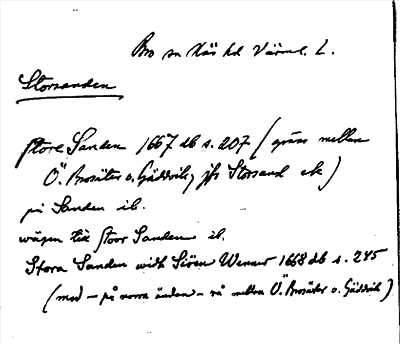 Bro sn Näs hd Värml. L.
Storsanden
store Sanden 1667 db s. 207 (gräns mellan
Ö. Brosäter o. Gäddvik, jfr Storsand ek)
på Sanden ib.
wägen till stoor Sanden ib.
Stora Sanden widh Siöen Wenner 1668 db s. 245
(med – på norra änden – rå mellan Ö. Brosäter o. Gäddvik)